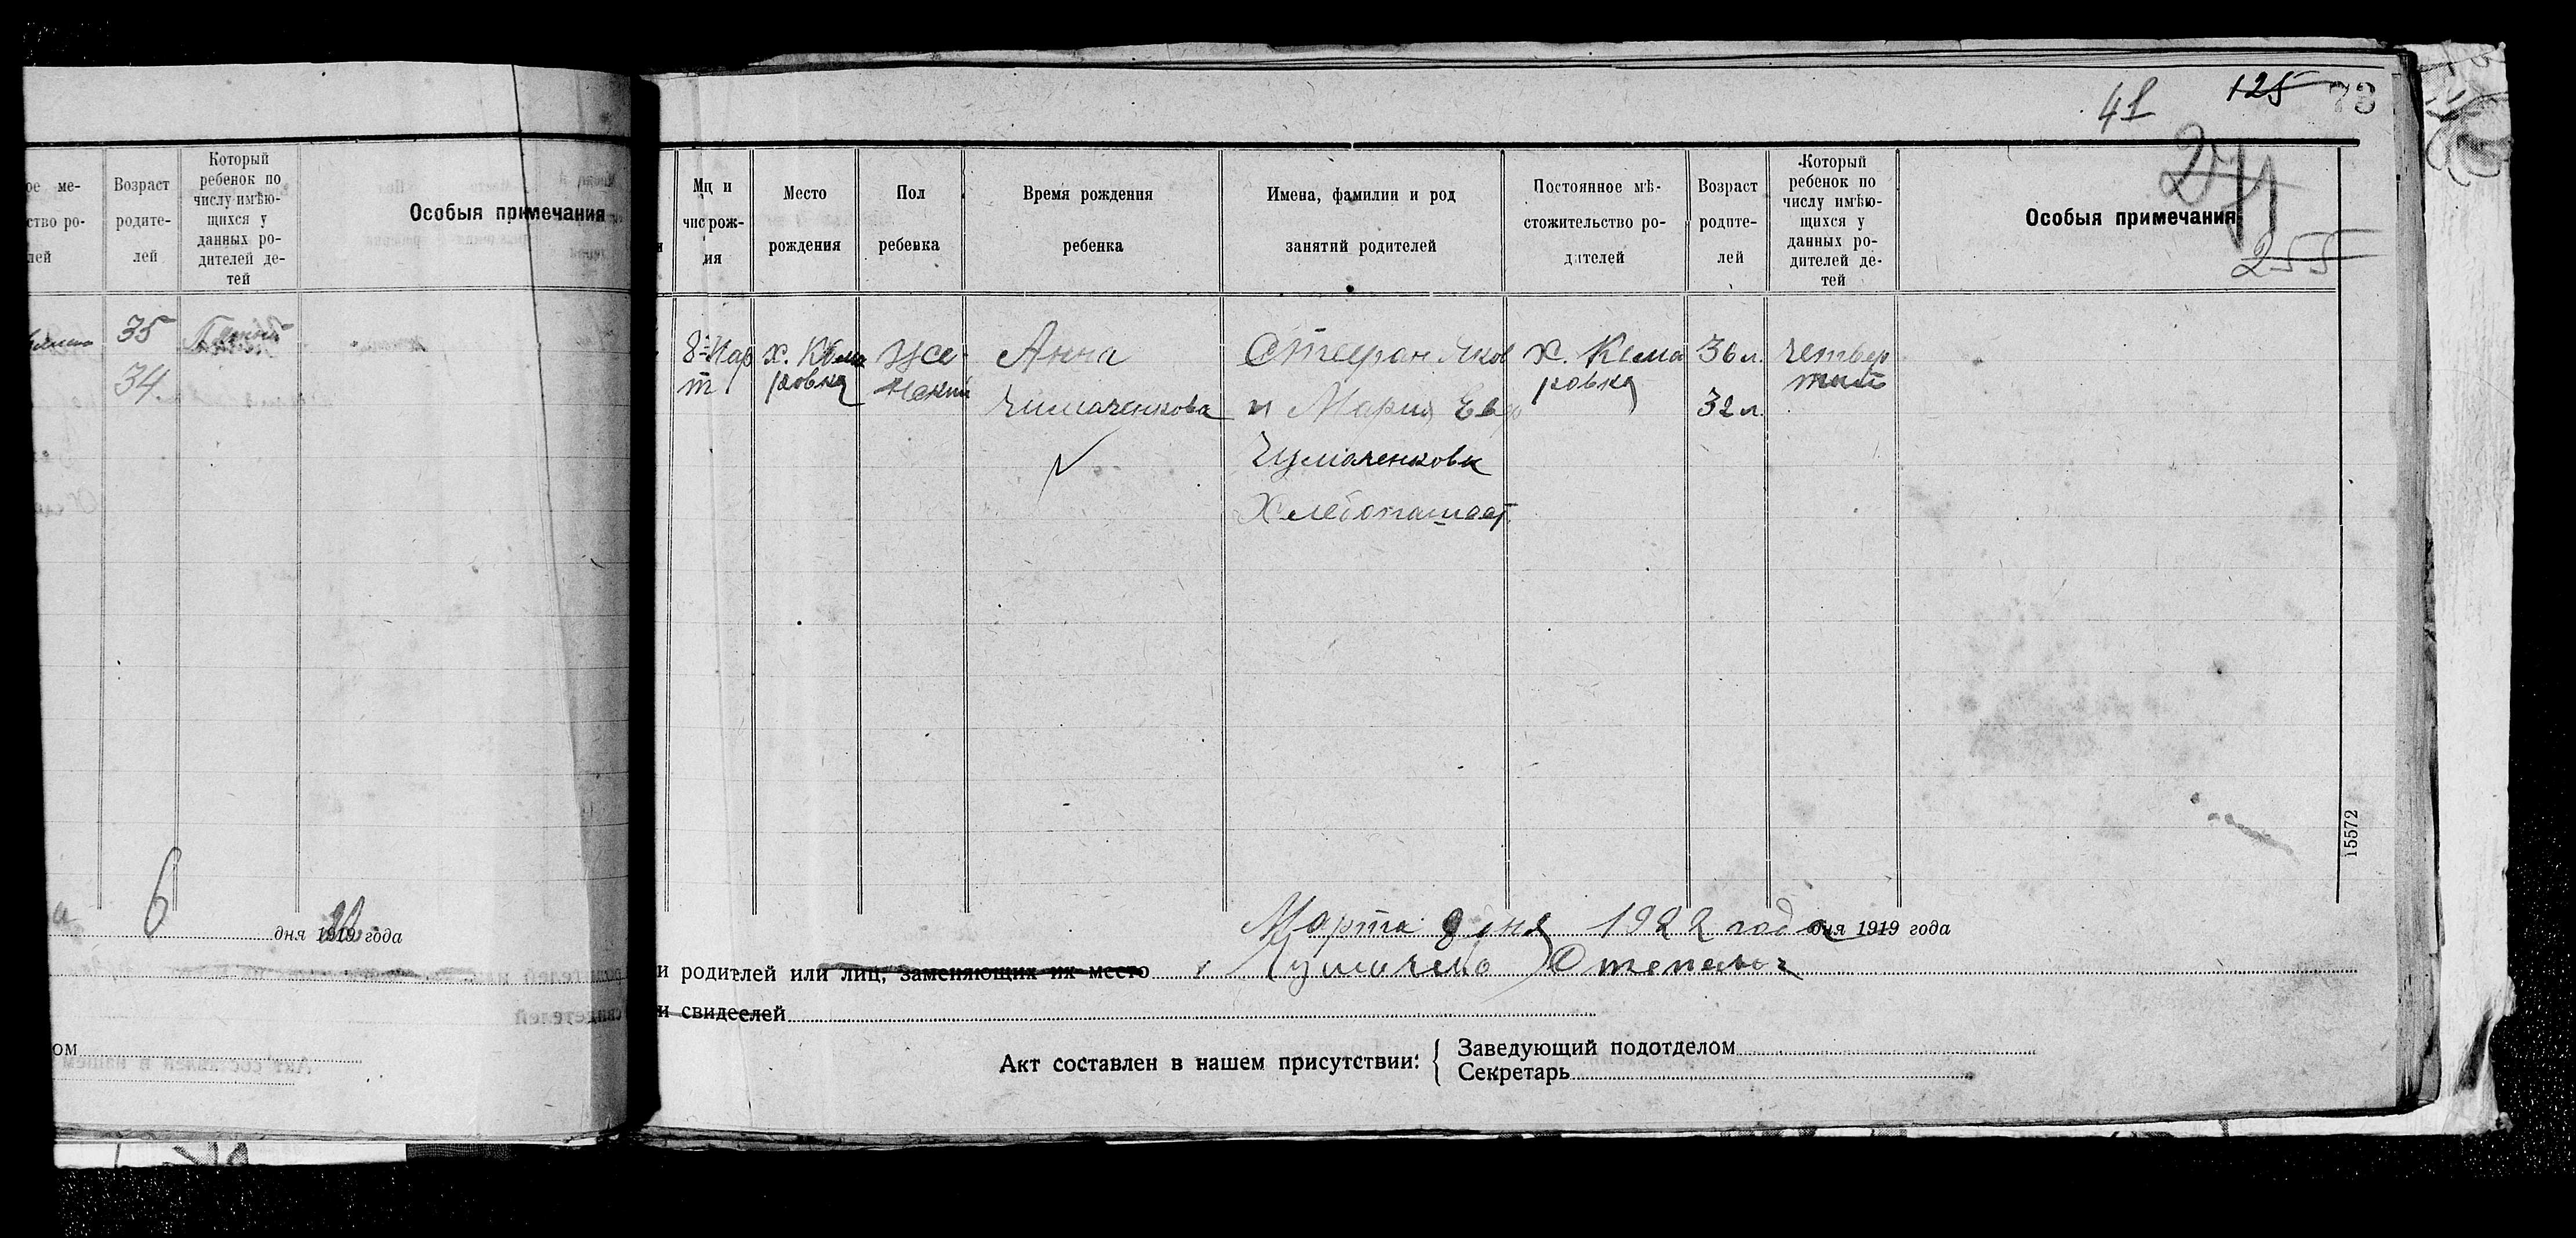 ое ме-
ство ро-
лей
Возраст
родите-
лей
Который
ребенок по
числу имѣю-
щихся у
данных ро-
дителей де-
тей
Особыя примечания
35
34
6
дня 1919 года
ом
41 125 73
271
255
Мц и
чис рож-
ия
Место
рождения
Пол
ребенка
Время рождения
ребенка
Имена, фамилии и род
занятий родителей
Постоянное мѣ-
стожительство ро-
дителей
Возраст
родите-
лей
Который
ребенок по
числу имѣю-
щихся у
данных ро-
дителей де-
тей
Особыя примечания
8 Мар
т
х. Кема
ровка
Же
нский
Анна
Чумаченкова
Стефан Яков
и Мария Евф
Чумаченковы
Хлебопашест.
х. Кема
ровка
36 л.
32 л.
четвер
тый
15572
Марта 8 дня 1922 года дня 1919 года
и родителей или лиц, заменяющих их место
и свидеелей
Акт составлен в нашем присутствии:
Заведующий подотделом
Секретарь